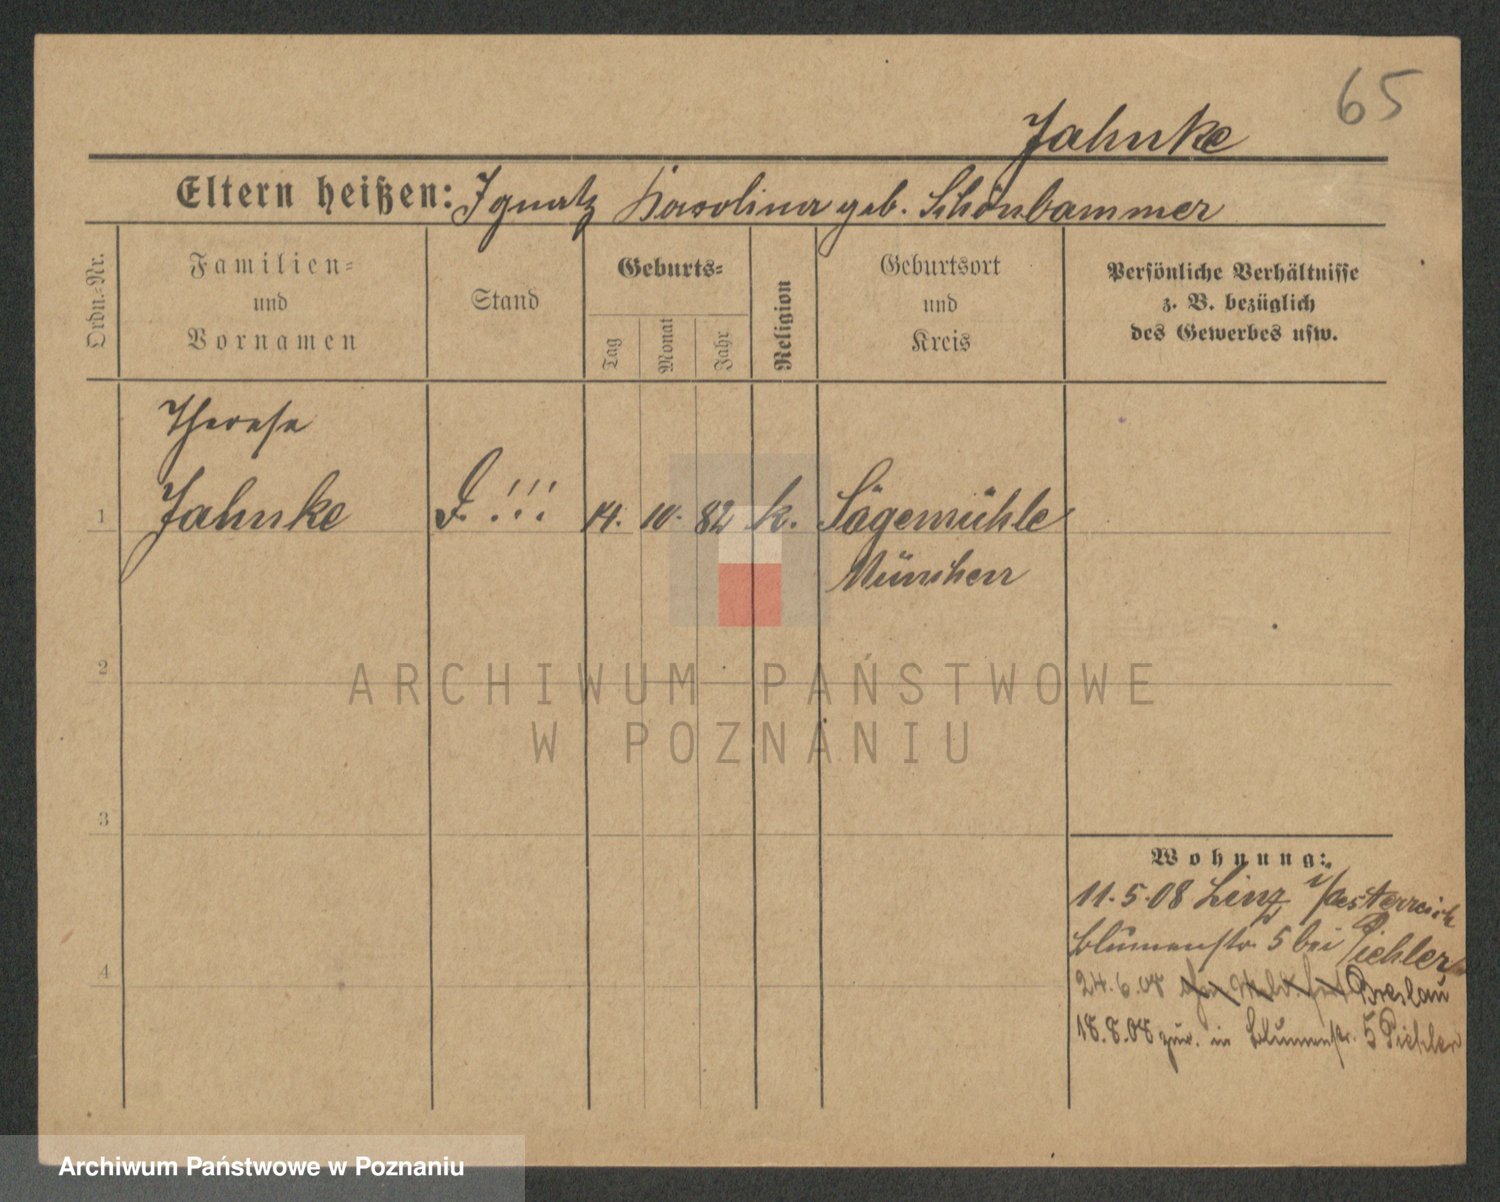 65
Jahnke
Eltern heißen: Ignatz Karolina geb. Schönbammer
Ordn.-Nr.
Familien-
und
Vornamen
Stand
Geburts-
Tag
Monat
Jahr
Religion
Geburtsort
und
Kreis
Persönliche Verhältnisse
z. B. bezüglich
des Gewerbes usw.
Therese
1 Jahnke P. !!! 14. 10. 82 k. Sägemühle
München
2
ARCHIWUM PAŃSTWOWE
W POZNANIU
3
Wohnung:
11.5.08 Linz i/Oesterreich
Blumenstr. 5 bei Pichler
4
24.6.08 Breslau
18.8.08 zur. in Blumenstr. 5 Pichler
Archiwum Państwowe w Poznaniu